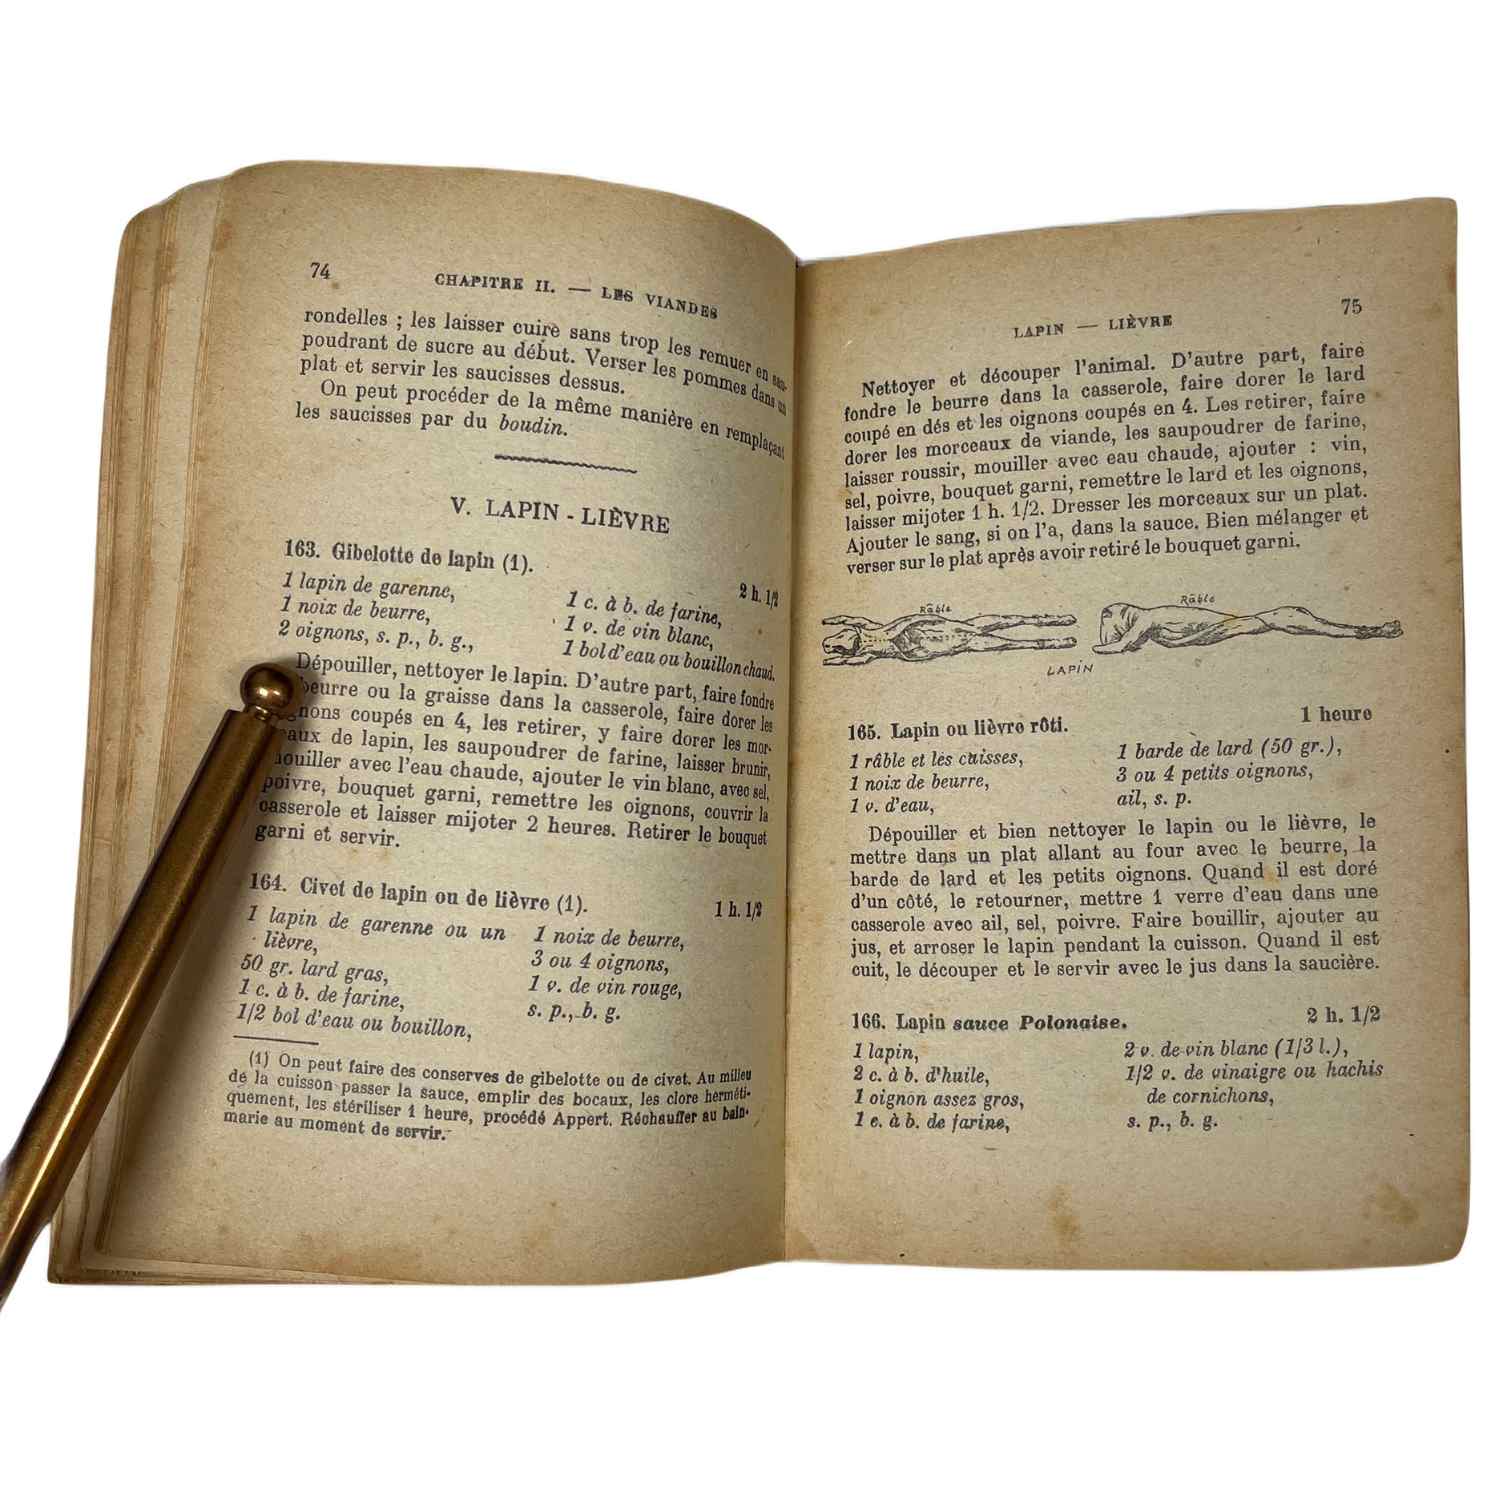 74
CHAPITRE II. — LES VIANDES
rondelles ; les laisser cuire sans trop les remuer en sau-
poudrant de sucre au début. Verser les pommes dans un
plat et servir les saucisses dessus.
On peut procéder de la même manière en remplaçant
les saucisses par du boudin.
V. LAPIN - LIÈVRE
163. Gibelotte de lapin (1).
2 h. 1/2
1 lapin de garenne,
1 noix de beurre,
2 oignons, s. p., b. g.,
1 c. à b. de farine,
1 v. de vin blanc,
1 bol d'eau ou bouillon chaud.
Dépouiller, nettoyer le lapin. D'autre part, faire fondre
beurre ou la graisse dans la casserole, faire dorer les
gnons coupés en 4, les retirer, y faire dorer les mor-
eaux de lapin, les saupoudrer de farine, laisser brunir,
mouiller avec l'eau chaude, ajouter le vin blanc, avec sel,
poivre, bouquet garni, remettre les oignons, couvrir la
casserole et laisser mijoter 2 heures. Retirer le bouquet
garni et servir.
164. Civet de lapin ou de lièvre (1).
1 h. 1/2
1 lapin de garenne ou un
lièvre,
50 gr. lard gras,
1 c. à b. de farine,
1/2 bol d'eau ou bouillon,
1 noix de beurre,
3 ou 4 oignons,
1 v. de vin rouge,
s. p., b. g.
(1) On peut faire des conserves de gibelotte ou de civet. Au milieu
de la cuisson passer la sauce, emplir des bocaux, les clore herméti-
quement, les stériliser 1 heure, procédé Appert. Réchauffer au bain-
marie au moment de servir.
75
LAPIN — LIÈVRE
Nettoyer et découper l'animal. D'autre part, faire
fondre le beurre dans la casserole, faire dorer le lard
coupé en dés et les oignons coupés en 4. Les retirer, faire
dorer les morceaux de viande, les saupoudrer de farine,
laisser roussir, mouiller avec eau chaude, ajouter : vin,
sel, poivre, bouquet garni, remettre le lard et les oignons,
laisser mijoter 1 h. 1/2. Dresser les morceaux sur un plat.
Ajouter le sang, si on l'a, dans la sauce. Bien mélanger et
verser sur le plat après avoir retiré le bouquet garni.
Râble
Râble
LAPIN
165. Lapin ou lièvre rôti.
1 heure
1 râble et les cuisses,
1 noix de beurre,
1 v. d'eau,
1 barde de lard (50 gr.),
3 ou 4 petits oignons,
ail, s. p.
Dépouiller et bien nettoyer le lapin ou le lièvre, le
mettre dans un plat allant au four avec le beurre, la
barde de lard et les petits oignons. Quand il est doré
d'un côté, le retourner, mettre 1 verre d'eau dans une
casserole avec ail, sel, poivre. Faire bouillir, ajouter au
jus, et arroser le lapin pendant la cuisson. Quand il est
cuit, le découper et le servir avec le jus dans la saucière.
166. Lapin sauce Polonaise.
2 h. 1/2
1 lapin,
2 c. à b. d'huile,
1 oignon assez gros,
1 c. à b. de farine,
2 v. de vin blanc (1/3 l.),
1/2 v. de vinaigre ou hachis
de cornichons,
s. p., b. g.